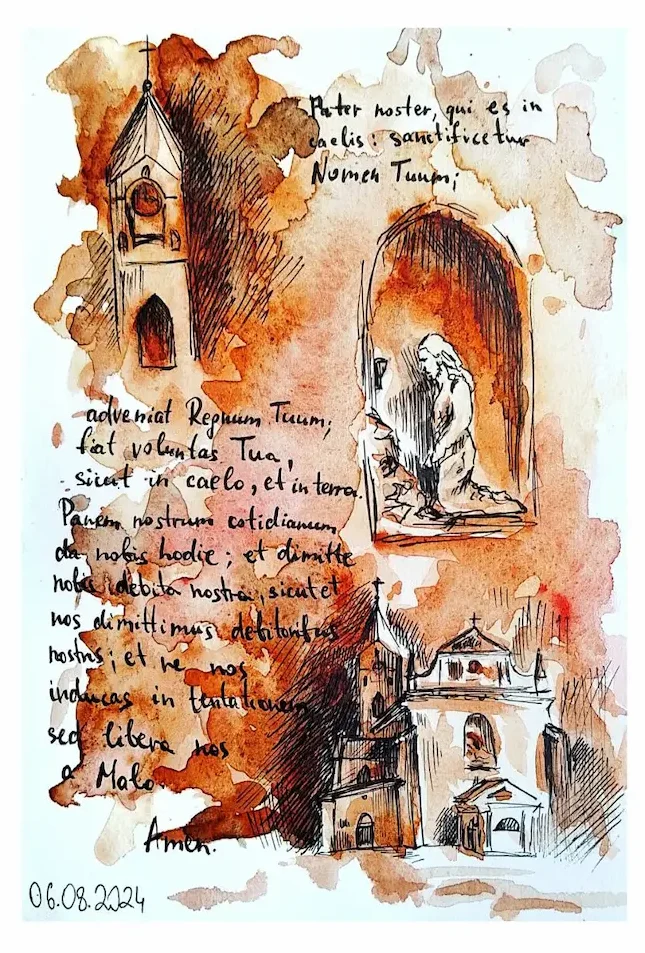 Pater noster, qui es in
caelis: sanctificetur
Nomen Tuum;
adveniat Regnum Tuum;
fiat voluntas Tua,
sicut in caelo, et in terra.
Panem nostrum cotidianum
da nobis hodie; et dimitte
nobis debita nostra, sicut et
nos dimittimus debitoribus
nostris; et ne nos
inducas in tentationem
sed libera nos
a Malo.
Amen.
06.08.2024